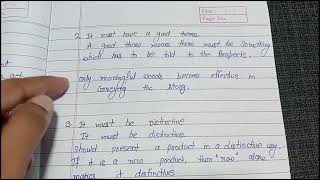 Date
Page No.
2. It must have a good theme
A good theme means there must be something
which has to be told to the Prospects.
only meaningful words become effective in
conveying the story.
3. It must be Distinctive
It must be distinctive
should present a product in a distinctive way.
If it is a new product, then 'new' alone
makes it distinctive